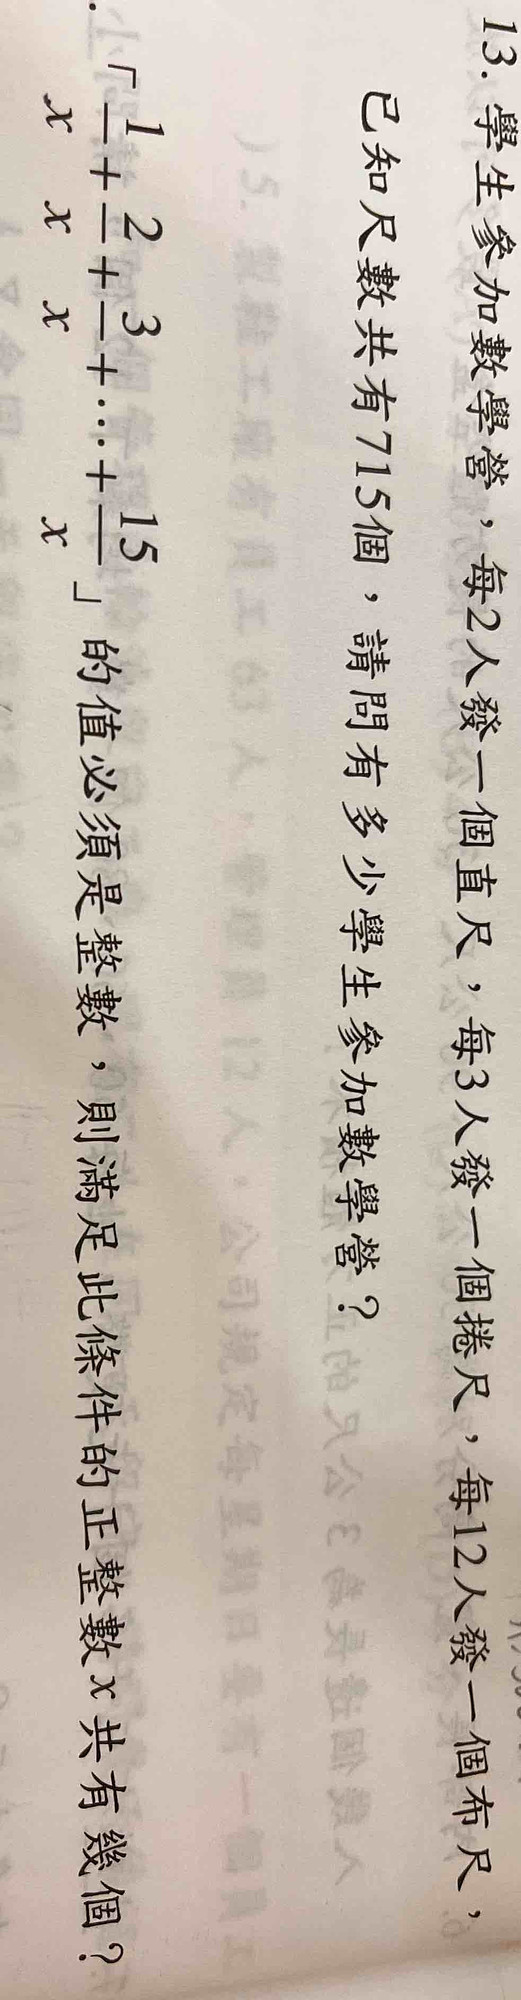 13.學生參加數學營，每2人發一個直尺，每3人發一個捲尺，每12人發一個布尺，
已知尺數共有715個，請問有多少學生參加數學營？
「1/x + 2/x + 3/x + … + 15/x」的值必須是整數，則滿足此條件的正整數x共有幾個？